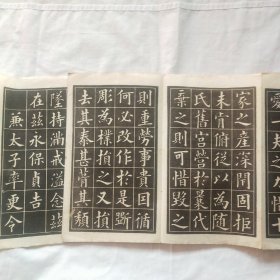 愛一夫之力惜十
家之產深閉固拒
未肯俯從以為隨
氏舊宮營於曩代
棄之則可惜毀之
則重勞事貴因循
何必改作於是斲
彫為樸損之又損
去其泰甚葺其頹
墜持滿戒溢念茲
在茲永保貞吉
兼太子率更令